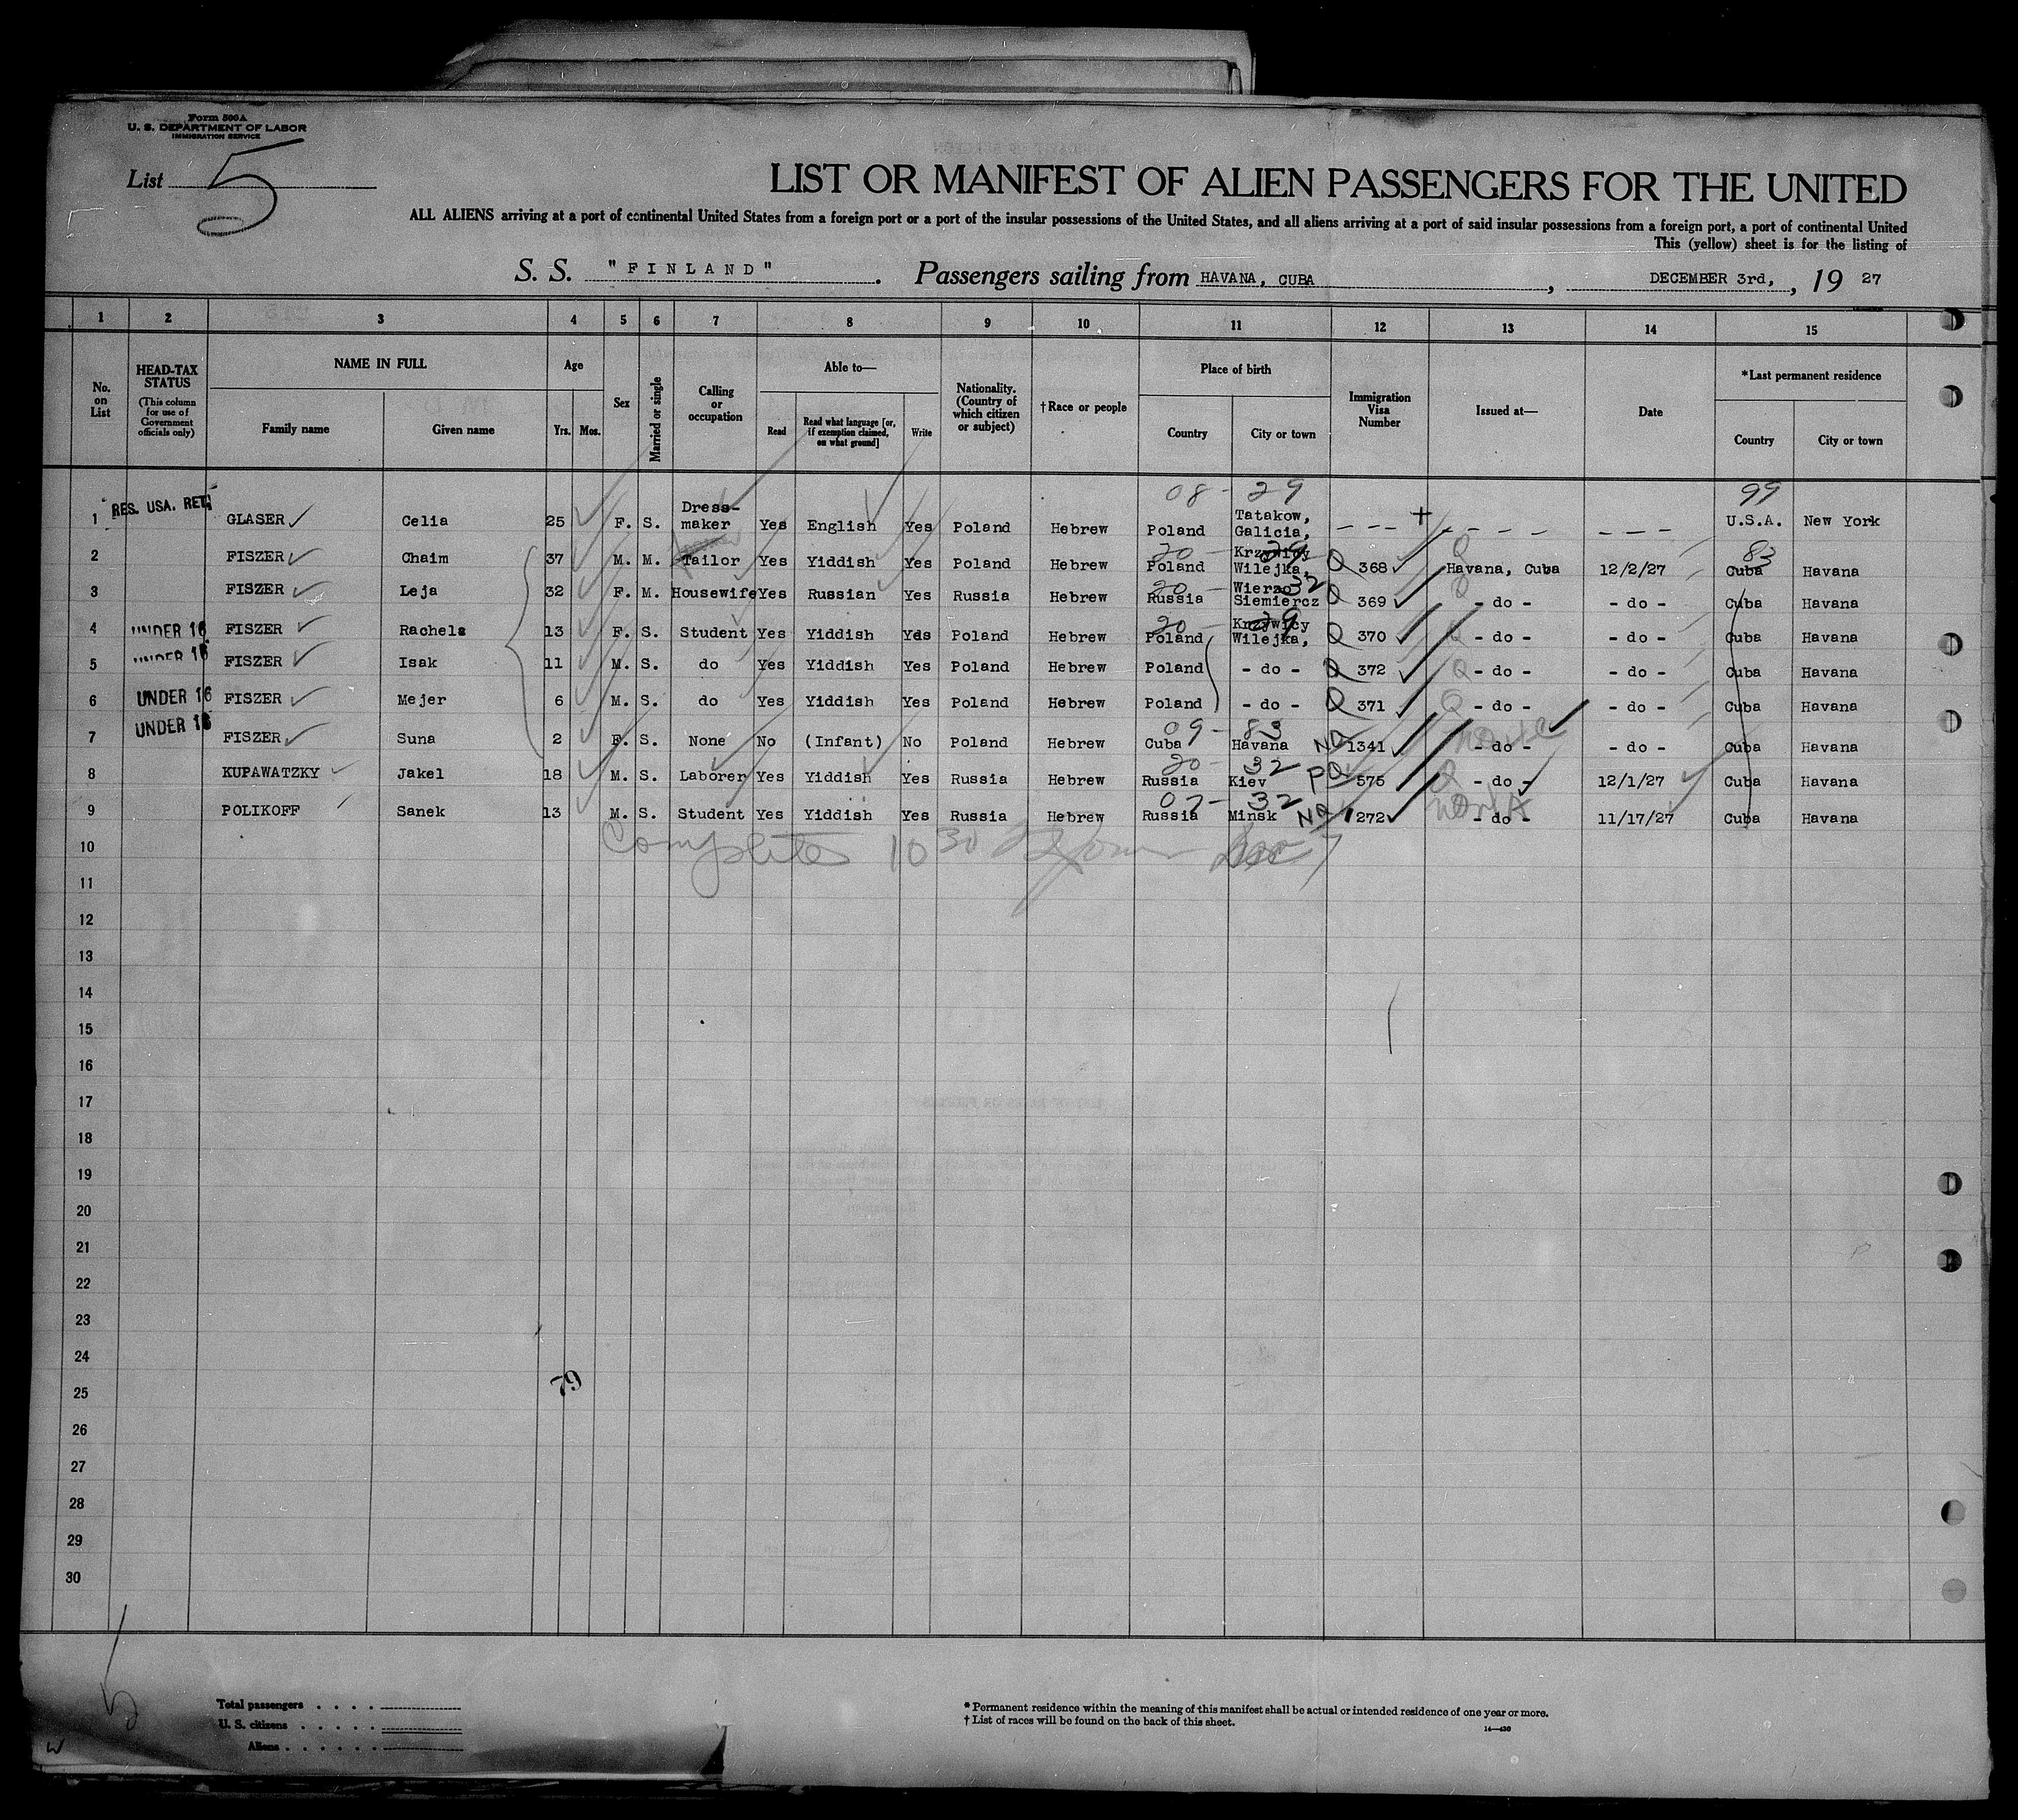 Form 500A
U. S. DEPARTMENT OF LABOR
IMMIGRATION SERVICE
List 5
LIST OR MANIFEST OF ALIEN PASSENGERS FOR THE UNITED
ALL ALIENS arriving at a port of continental United States from a foreign port or a port of the insular possessions of the United States, and all aliens arriving at a port of said insular possessions from a foreign port, a port of continental United
This (yellow) sheet is for the listing of
S. S. "FINLAND". Passengers sailing from HAVANA, CUBA, DECEMBER 3rd, , 19 27
1 2 3 4 5 6 7 8 9 10 11 12 13 14 15
No. on List
HEAD-TAX STATUS (This column for use of Government officials only)
NAME IN FULL
Family name Given name
Age
Yrs. Mos.
Sex
Married or single
Calling or occupation
Able to—
Read Read what language [or, if exemption claimed, on what ground] Write
Nationality. (Country of which citizen or subject)
†Race or people
Place of birth
Country City or town
Immigration Visa Number
Issued at—
Date
*Last permanent residence
Country City or town
08 - 29 99
1 RES. USA. RET. GLASER Celia 25 F. S. Dress-maker Yes English Yes Poland Hebrew Poland Tatakow, Galicia, U.S.A. New York
20 - 29 83
2 FISZER Chaim 37 M. M. Tailor Yes Yiddish Yes Poland Hebrew Poland Krzywicy Wilejka, Q 368 Q Havana, Cuba 12/2/27 Cuba Havana
20 - 32
3 FISZER Leja 32 F. M. Housewife Yes Russian Yes Russia Hebrew Russia Siemiercz Q 369 Q - do - - do - Cuba Havana
20 - 29
4 UNDER 16 FISZER Rachela 13 F. S. Student Yes Yiddish Yes Poland Hebrew Poland Krzywicy Wilejka, Q 370 Q - do - - do - Cuba Havana
5 UNDER 16 FISZER Isak 11 M. S. do Yes Yiddish Yes Poland Hebrew Poland - do - Q 372 Q - do - - do - Cuba Havana
6 UNDER 16 FISZER Mejer 6 M. S. do Yes Yiddish Yes Poland Hebrew Poland - do - Q 371 Q - do - - do - Cuba Havana
09 - 83
7 UNDER 16 FISZER Suna 2 F. S. None No (Infant) No Poland Hebrew Cuba Havana NQ 1341 - do - - do - Cuba Havana
20 - 32
8 KUPAWATZKY Jakel 18 M. S. Laborer Yes Yiddish Yes Russia Hebrew Russia Kiev PQ 575 Q - do - 12/1/27 Cuba Havana
07 - 32
9 POLIKOFF Sanek 13 M. S. Student Yes Yiddish Yes Russia Hebrew Russia Minsk NQ 1272 - do - 11/17/27 Cuba Havana
10 Complete 10 30 7
11
12
13
14
15
16
17
18
19
20
21
22
23
24
79
25
26
27
28
29
30
Total passengers . . . .
U. S. citizens . . . . .
Aliens . . . . . .
* Permanent residence within the meaning of this manifest shall be actual or intended residence of one year or more.
† List of races will be found on the back of this sheet.
14—430